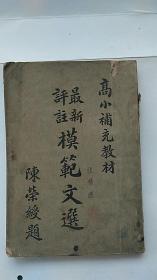 高小補充教材
最新
評註
模範文選
陳榮綬題